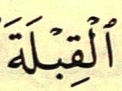 ٱلْقِبْلَةَ